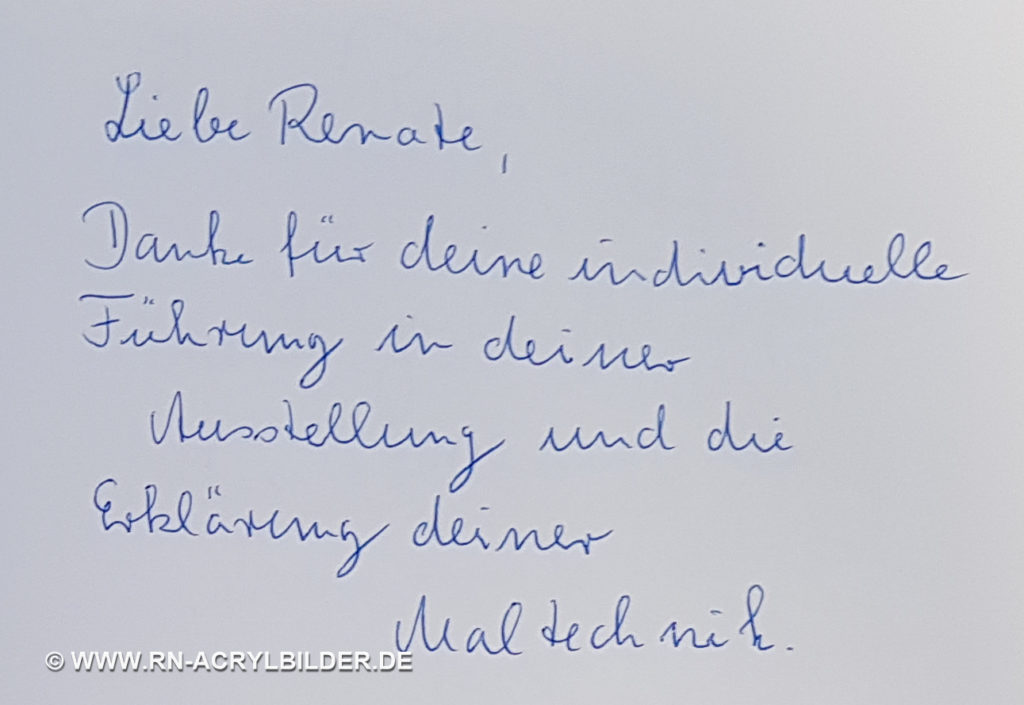 Liebe Renate,
Danke für deine individuelle
Führung in deiner
Ausstellung und die
Erklärung deiner
Maltechnik.
© WWW.RN-ACRYLBILDER.DE